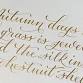 Autumn days
grass is jewel
the silk
chestnut sh